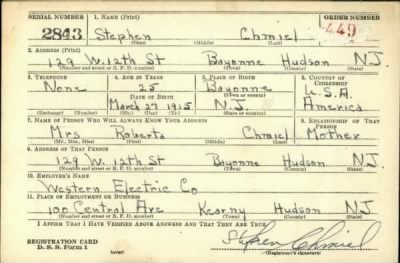 SERIAL NUMBER 1. NAME (Print) ORDER NUMBER
2843 Stephen Chmiel 449
(First) (Middle) (Last)
2. ADDRESS (Print)
129 W. 12th St Bayonne Hudson N.J.
(Number and street or R. F. D. number) (Town) (County) (State)
3. TELEPHONE 4. AGE IN YEARS 5. PLACE OF BIRTH 6. COUNTRY OF CITIZENSHIP
None 25 Bayonne U.S.A.
DATE OF BIRTH (Town or county)
March 27 1915 N.J. America
(Exchange) (Number) (Mo.) (Day) (Yr.) (State or country)
7. NAME OF PERSON WHO WILL ALWAYS KNOW YOUR ADDRESS 8. RELATIONSHIP OF THAT PERSON
Mrs Roberta Chmiel Mother
(Mr., Mrs., Miss) (First) (Middle) (Last)
9. ADDRESS OF THAT PERSON
129 W. 12th St Bayonne Hudson N.J.
(Number and street or R. F. D. number) (Town) (County) (State)
10. EMPLOYER'S NAME
Western Electric Co
11. PLACE OF EMPLOYMENT OR BUSINESS
100 Central Ave Kearny Hudson NJ
(Number and street or R. F. D. number) (Town) (County) (State)
I AFFIRM THAT I HAVE VERIFIED ABOVE ANSWERS AND THAT THEY ARE TRUE.
REGISTRATION CARD
D. S. S. Form 1 (over) Stephen Chmiel
(Registrant's signature)